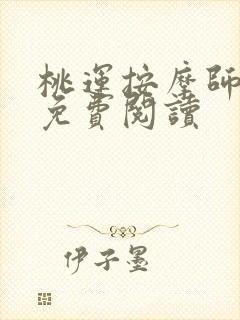 桃運按摩師
免費閱讀
伊子墨